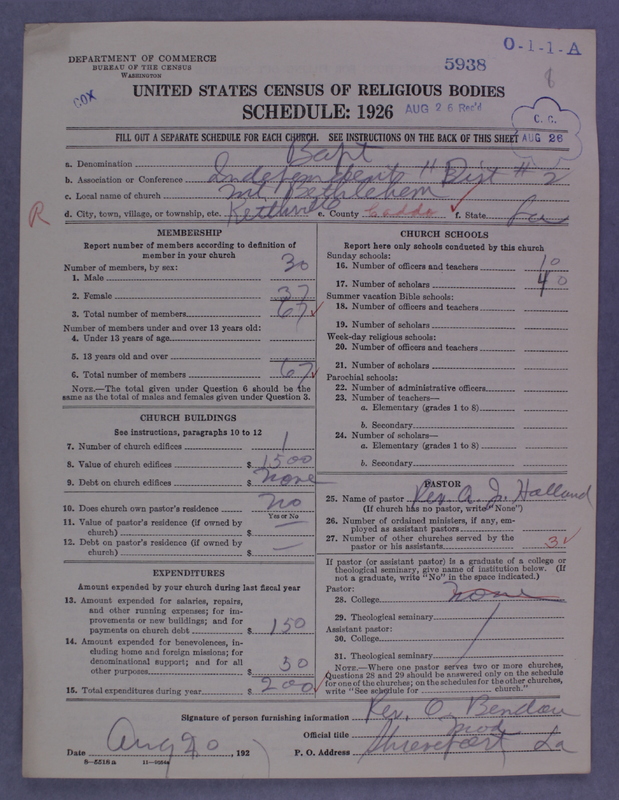 DEPARTMENT OF COMMERCE
BUREAU OF THE CENSUS
WASHINGTON
5938
O-1-1-A
8
COX
UNITED STATES CENSUS OF RELIGIOUS BODIES
SCHEDULE: 1926
AUG 26 Rec'd
C. C.
AUG 26
FILL OUT A SEPARATE SCHEDULE FOR EACH CHURCH. SEE INSTRUCTIONS ON THE BACK OF THIS SHEET
a. Denomination Bapt
b. Association or Conference Independence " Dist # 2
c. Local name of church Mt Bethlehem
R
d. City, town, village, or township, etc. e. County Caddo f. State La
MEMBERSHIP
Report number of members according to definition of member in your church
Number of members, by sex:
1. Male 30
2. Female 37
3. Total number of members 67
Number of members under and over 13 years old:
4. Under 13 years of age
5. 13 years old and over
6. Total number of members 67
NOTE.—The total given under Question 6 should be the
same as the total of males and females given under Question 3.
CHURCH BUILDINGS
See instructions, paragraphs 10 to 12
7. Number of church edifices 1
8. Value of church edifices $ 1500
9. Debt on church edifices $ none
10. Does church own pastor's residence no
Yes or No
11. Value of pastor's residence (if owned by
church) $ —
12. Debt on pastor's residence (if owned by
church) $ —
EXPENDITURES
Amount expended by your church during last fiscal year
13. Amount expended for salaries, repairs,
and other running expenses; for im-
provements or new buildings; and for
payments on church debt $ 150
14. Amount expended for benevolences, in-
cluding home and foreign missions; for
denominational support; and for all
other purposes $ 50
15. Total expenditures during year $ 200
CHURCH SCHOOLS
Report here only schools conducted by this church
Sunday schools:
16. Number of officers and teachers 10
17. Number of scholars 40
Summer vacation Bible schools:
18. Number of officers and teachers
19. Number of scholars
Week-day religious schools:
20. Number of officers and teachers
21. Number of scholars
Parochial schools:
22. Number of administrative officers
23. Number of teachers—
a. Elementary (grades 1 to 8)
b. Secondary
24. Number of scholars—
a. Elementary (grades 1 to 8)
b. Secondary
PASTOR
25. Name of pastor Rev. A. J. Holland
(If church has no pastor, write "None")
26. Number of ordained ministers, if any, em-
ployed as assistant pastors
27. Number of other churches served by the
pastor or his assistants 3
If pastor (or assistant pastor) is a graduate of a college or
theological seminary, give name of institution below. (If
not a graduate, write "No" in the space indicated.)
Pastor:
28. College none
29. Theological seminary
Assistant pastor:
30. College
31. Theological seminary
NOTE.—Where one pastor serves two or more churches,
Questions 28 and 29 should be answered only on the schedule
for one of the churches; on the schedules for the other churches
write "See schedule for church."
Signature of person furnishing information Rev. O.
Official title Mod
Date Aug 20, 192
P. O. Address Shreveport La
8-5518a